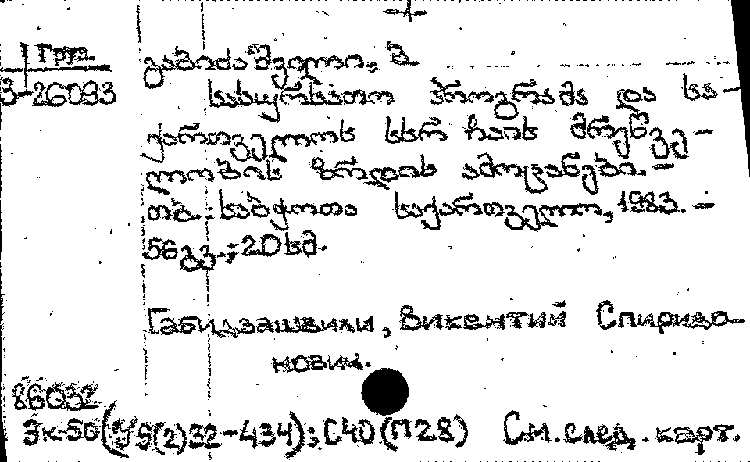 Груз.
3-26093
გაბიძაშვილი, ვ.
სასურსათო პროგრამა და სა-
ქართველოს სსრ ჩაის მრეწვე-
ლობის ზრდის ამოცანები. -
თბ.: საბჭოთა საქართველო, 1983. -
56 გვ.; 20 სმ.
Габидзашвили, Викентий Спиридо-
нович.
86032
Эк-5б (У9(2)32-434); С40 (П28) См. след. карт.